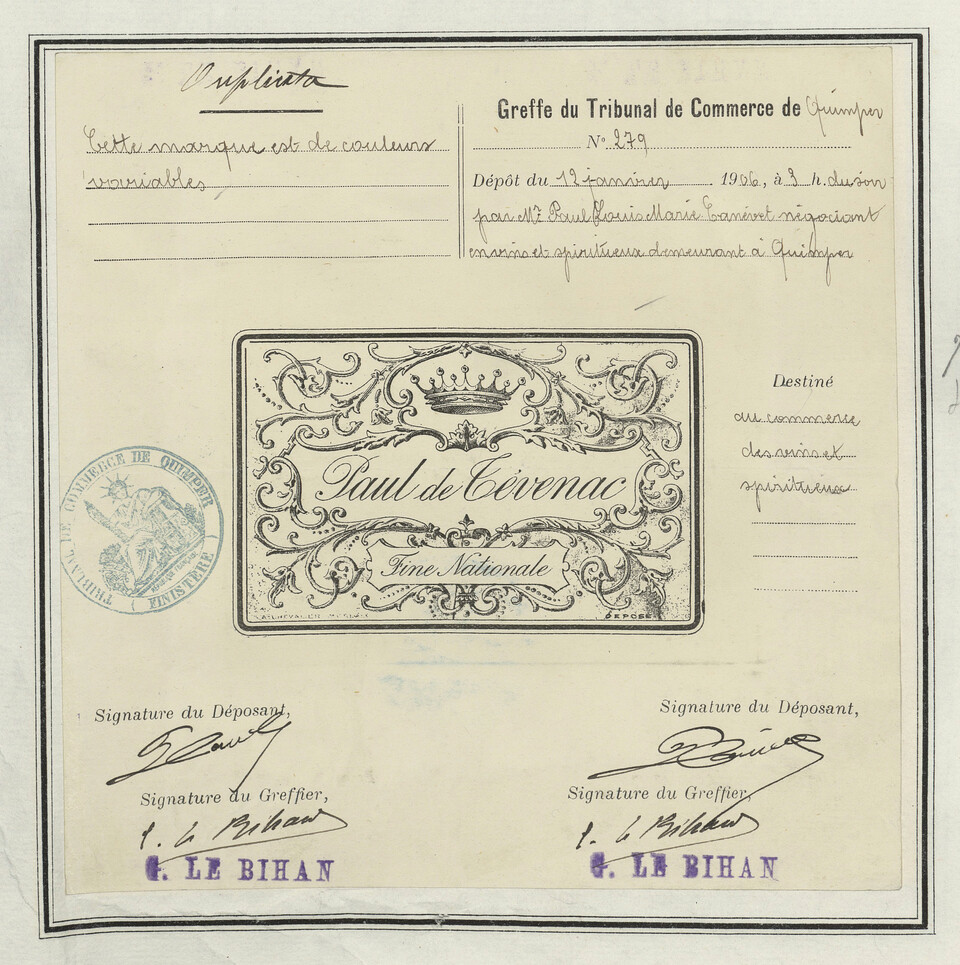 Duplicata
Cette marque est de couleurs
variables
Greffe du Tribunal de Commerce de Quimper
N° 279
Dépôt du 12 janvier 1906, à 3 h. du soir
par Mr Paul Louis Marie Canévet négociant
en vins et spiritueux demeurant à Quimper
Paul de Tévenac
Fine Nationale
DÉPOSÉ
Destiné
au commerce
des vins et
spiritueux
TRIBUNAL DE COMMERCE DE QUIMPER
( FINISTERE )
Signature du Déposant,
Signature du Déposant,
Signature du Greffier,
Signature du Greffier,
G. Le Bihan
G. Le Bihan
G. LE BIHAN
G. LE BIHAN